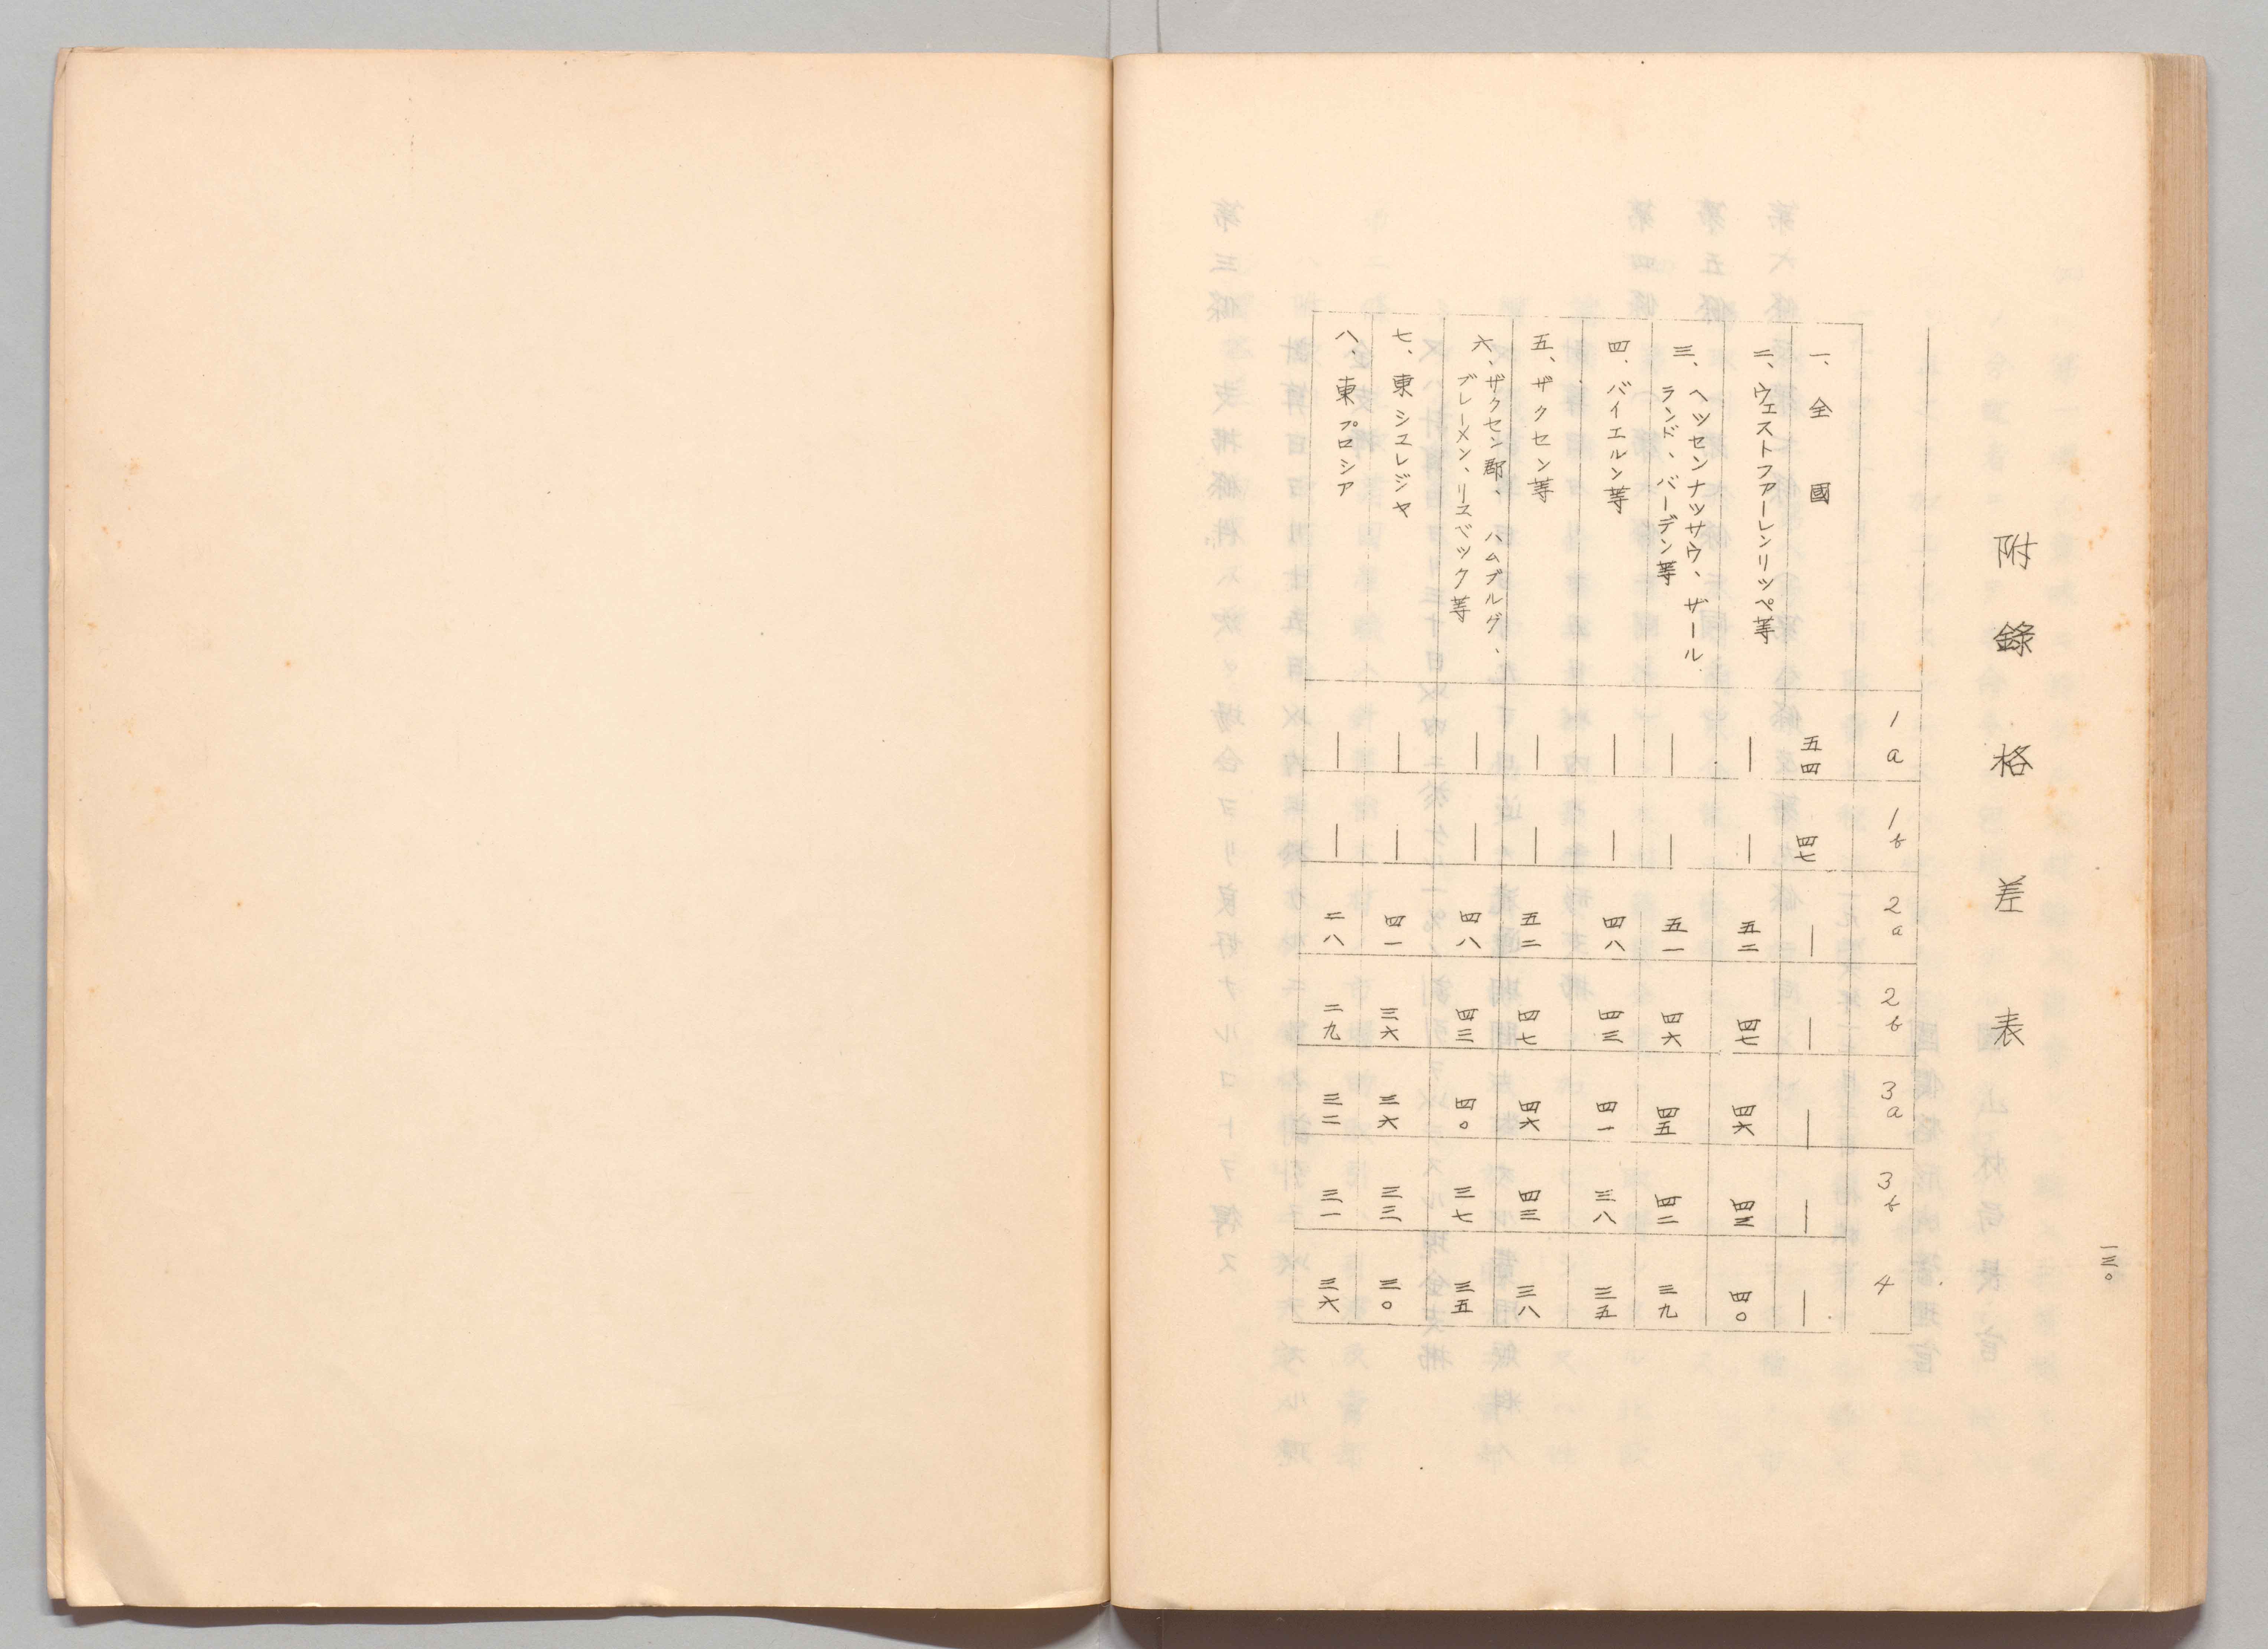 附錄 格差表
1a 1b 2a 2b 3a 3b 4
一、全國 五四 四七 ｜ ｜ ｜ ｜ ｜
二、ウェストファーレンリツペ等 ｜ ｜ 五二 四七 四六 四三 四〇
三、ヘツセンナツサウ、ザール
ランド、バーデン等 ｜ ｜ 五一 四六 四五 四二 三九
四、バイエルン等 ｜ ｜ 四八 四三 四一 三八 三五
五、ザクセン等 ｜ ｜ 五二 四七 四六 四三 三八
六、ザクセン郡、ハムブルグ、
ブレーメン、リユベツク等 ｜ ｜ 四八 四三 四〇 三七 三五
七、東シユレジヤ ｜ ｜ 四一 三六 三六 三三 三〇
八、東プロシア ｜ ｜ 二八 二九 三二 三一 三六
一三〇